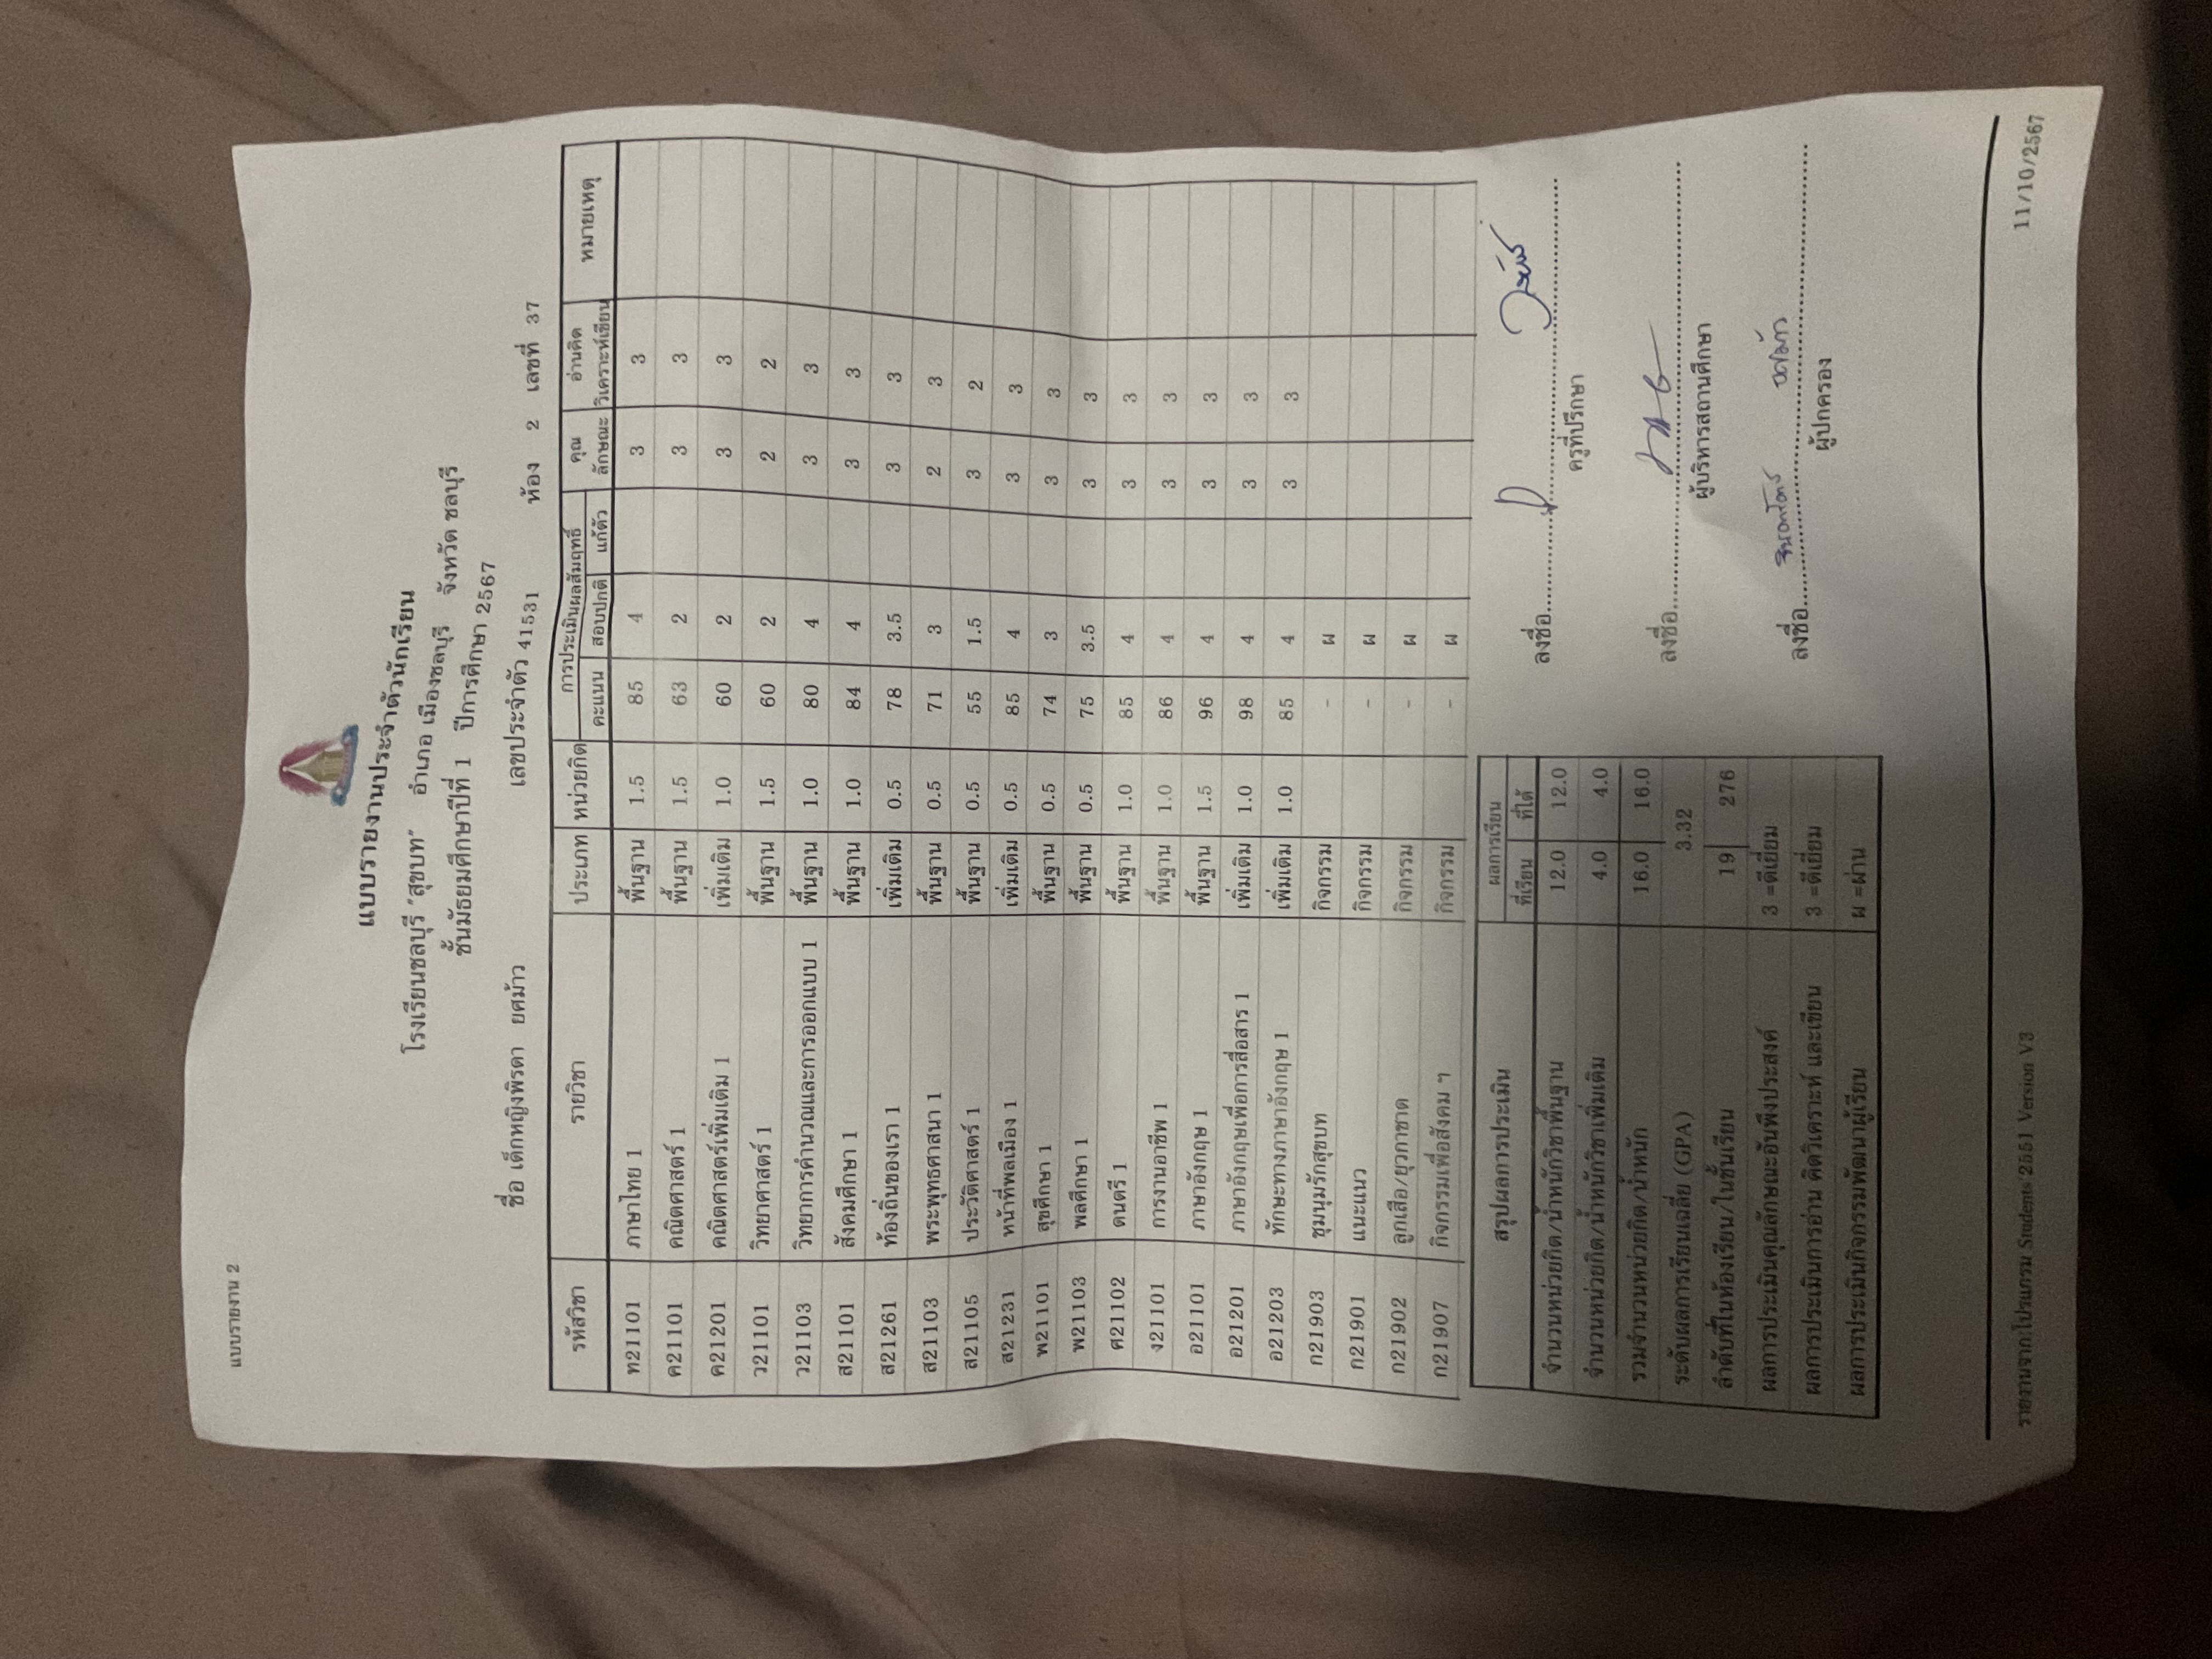 แบบรายงาน 2
แบบรายงานประจำตัวนักเรียน
โรงเรียนชลบุรี "สุขบท" อำเภอ เมืองชลบุรี จังหวัด ชลบุรี
ชั้นมัธยมศึกษาปีที่ 1 ปีการศึกษา 2567
ชื่อ เด็กหญิงพิรดา ยศม้าว เลขประจำตัว 41531 ห้อง 2 เลขที่ 37
รหัสวิชา รายวิชา ประเภท หน่วยกิต การประเมินผลสัมฤทธิ์ คุณลักษณะ อ่านคิดวิเคราะห์เขียน หมายเหตุ
คะแนน สอบปกติ แก้ตัว
ท21101 ภาษาไทย 1 พื้นฐาน 1.5 85 4 3 3
ค21101 คณิตศาสตร์ 1 พื้นฐาน 1.5 63 2 3 3
ค21201 คณิตศาสตร์เพิ่มเติม 1 เพิ่มเติม 1.0 60 2 3 3
ว21101 วิทยาศาสตร์ 1 พื้นฐาน 1.5 60 2 2 2
ว21103 วิทยาการคำนวณและการออกแบบ 1 พื้นฐาน 1.0 80 4 3 3
ส21101 สังคมศึกษา 1 พื้นฐาน 1.0 84 4 3 3
ส21261 ท้องถิ่นของเรา 1 เพิ่มเติม 0.5 78 3.5 3 3
ส21103 พระพุทธศาสนา 1 พื้นฐาน 0.5 71 3 2 3
ส21105 ประวัติศาสตร์ 1 พื้นฐาน 0.5 55 1.5 3 2
ส21231 หน้าที่พลเมือง 1 เพิ่มเติม 0.5 85 4 3 3
พ21101 สุขศึกษา 1 พื้นฐาน 0.5 74 3 3 3
พ21103 พลศึกษา 1 พื้นฐาน 0.5 75 3.5 3 3
ศ21102 ดนตรี 1 พื้นฐาน 1.0 85 4 3 3
ง21101 การงานอาชีพ 1 พื้นฐาน 1.0 86 4 3 3
อ21101 ภาษาอังกฤษ 1 พื้นฐาน 1.5 96 4 3 3
อ21201 ภาษาอังกฤษเพื่อการสื่อสาร 1 เพิ่มเติม 1.0 98 4 3 3
อ21203 ทักษะทางภาษาอังกฤษ 1 เพิ่มเติม 1.0 85 4 3 3
ก21903 ชุมนุมรักสุขบท กิจกรรม - ผ
ก21901 แนะแนว กิจกรรม - ผ
ก21902 ลูกเสือ/ยุวกาชาด กิจกรรม - ผ
ก21907 กิจกรรมเพื่อสังคม ฯ กิจกรรม - ผ
สรุปผลการประเมิน ผลการเรียน
ที่เรียน ที่ได้
จำนวนหน่วยกิต/น้ำหนักวิชาพื้นฐาน 12.0 12.0
จำนวนหน่วยกิต/น้ำหนักวิชาเพิ่มเติม 4.0 4.0
รวมจำนวนหน่วยกิต/น้ำหนัก 16.0 16.0
ระดับผลการเรียนเฉลี่ย (GPA) 3.32
ลำดับที่ในห้องเรียน/ในชั้นเรียน 19 276
ผลการประเมินคุณลักษณะอันพึงประสงค์ 3 =ดีเยี่ยม
ผลการประเมินการอ่าน คิดวิเคราะห์ และเขียน 3 =ดีเยี่ยม
ผลการประเมินกิจกรรมพัฒนาผู้เรียน ผ =ผ่าน
ลงชื่อ
ครูที่ปรึกษา
ลงชื่อ
ผู้บริหารสถานศึกษา
ลงชื่อ
ผู้ปกครอง
รายงานจาก:โปรแกรม Students'2551 Version V3 11/10/2567